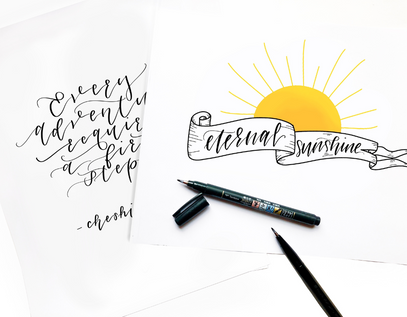 Every
adventu
requir
a fir
step
- cheshi
eternal sunshine